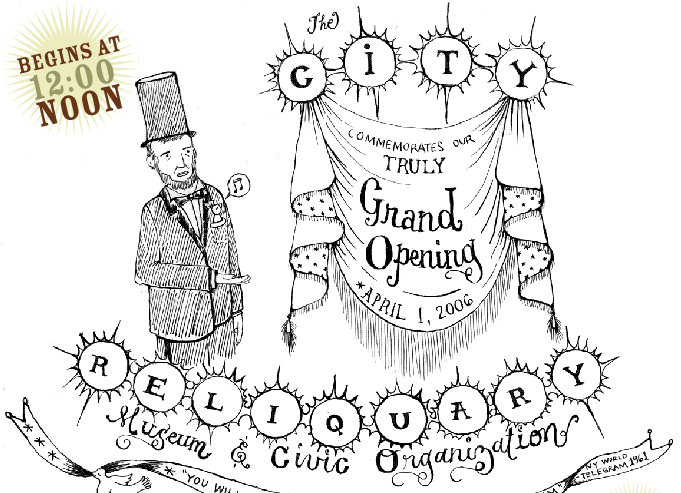 BEGINS AT
12:00
NOON
The
CiTY
COMMEMORATES OUR
TRULY
Grand
Opening
*APRIL 1, 2006
RELIQUARY
Museum & Civic Organization
* "YOU WI
NY WORLD
TELEGRAM 1961